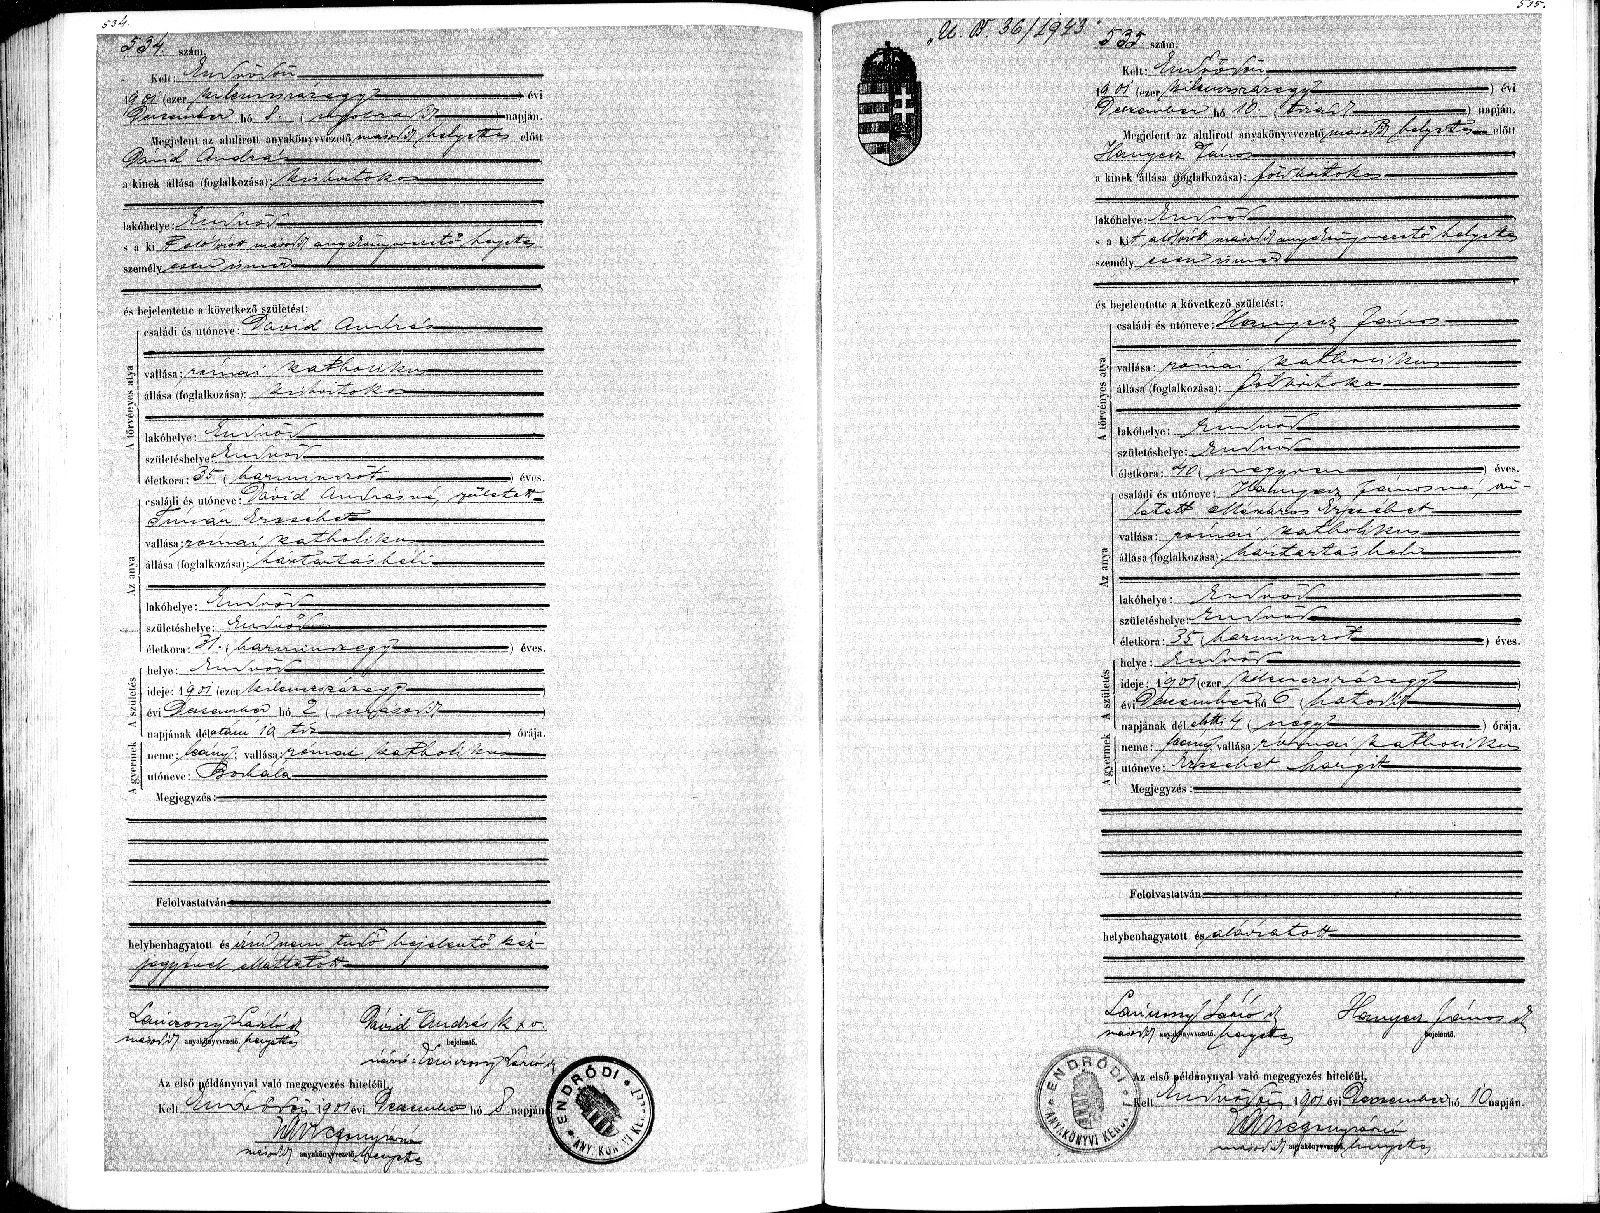 534.
534. szám.
Kelt: Endrődön
1901 (ezer kilenczszázegy) évi
December hó 8. (nyolcadik) napján.
Megjelent az alulirott anyakönyvvezető második helyettes előtt
Dávid András
a kinek állása (foglalkozása): kisbirtokos
lakóhelye: Endrőd
s a kit alólírt második anyakönyvvezető helyettes
személyesen ismer
és bejelentette a következő születést:
A törvényes atya
családi és utóneve: Dávid András
vallása: római katholikus
állása (foglalkozása): kisbirtokos
lakóhelye: Endrőd
születéshelye: Endrőd
életkora: 35 (harminczöt) éves.
Az anya
családi és utóneve: Dávid Andrásné, született
Erzsébet
vallása: római katholikus
állása (foglalkozása): háztartásbeli
lakóhelye: Endrőd
születéshelye: Endrőd
életkora: 31. (harminczegy) éves.
A születés
helye: Endrőd
ideje: 1901 (ezer kilenczszázegy)
évi December hó 2 (második)
napjának délután 10 tiz órája.
A gyermek
neme: leány; vallása: római katholikus
utóneve: Borbála
Megjegyzés:
Felolvastatván
helybenhagyatott és írni nem tudó bejelentő kéz-
jegyével elláttatott
László
második anyakönyvvezető helyettes
Dávid András k x v.
bejelentő.
Az első példánynyal való megegyezés hiteléül,
Kelt Endrődön 1901 évi December hó 8 napján
második anyakönyvvezető helyettes
ENDRŐDI ANYAKÖNYVI KERÜLET
535.
"U. B. 36/1943"
535 szám.
Kelt: Endrődön
1901 (ezer kilenczszázegy) évi
December hó 10. (tizedik) napján.
Megjelent az alulirott anyakönyvvezető második helyettes előtt
Hanyecz János
a kinek állása (foglalkozása): földbirtokos
lakóhelye: Endrőd
s a kit alólírt második anyakönyvvezető helyettes
személyesen ismer
és bejelentette a következő születést:
A törvényes atya
családi és utóneve: Hanyecz János
vallása: római katholikus
állása (foglalkozása): földbirtokos
lakóhelye: Endrőd
születéshelye: Endrőd
életkora: 40 (negyven) éves.
Az anya
családi és utóneve: Hanyecz Jánosné, szü-
letett Mészáros Erzsébet
vallása: római katholikus
állása (foglalkozása): háztartásbeli
lakóhelye: Endrőd
születéshelye: Endrőd
életkora: 35 (harminczöt) éves.
A születés
helye: Endrőd
ideje: 1901 (ezer kilenczszázegy)
évi December hó 6 (hatodik)
napjának délelőtt 4 (négy) órája.
A gyermek
neme: leány; vallása: római katholikus
utóneve: Erzsébet Margit
Megjegyzés:
Felolvastatván
helybenhagyatott és aláíratott
László
második anyakönyvvezető helyettes
Hanyecz János
bejelentő.
Az első példánynyal való megegyezés hiteléül,
Kelt Endrődön 1901 évi December hó 10 napján.
második anyakönyvvezető helyettes
ENDRŐDI ANYAKÖNYVI KERÜLET